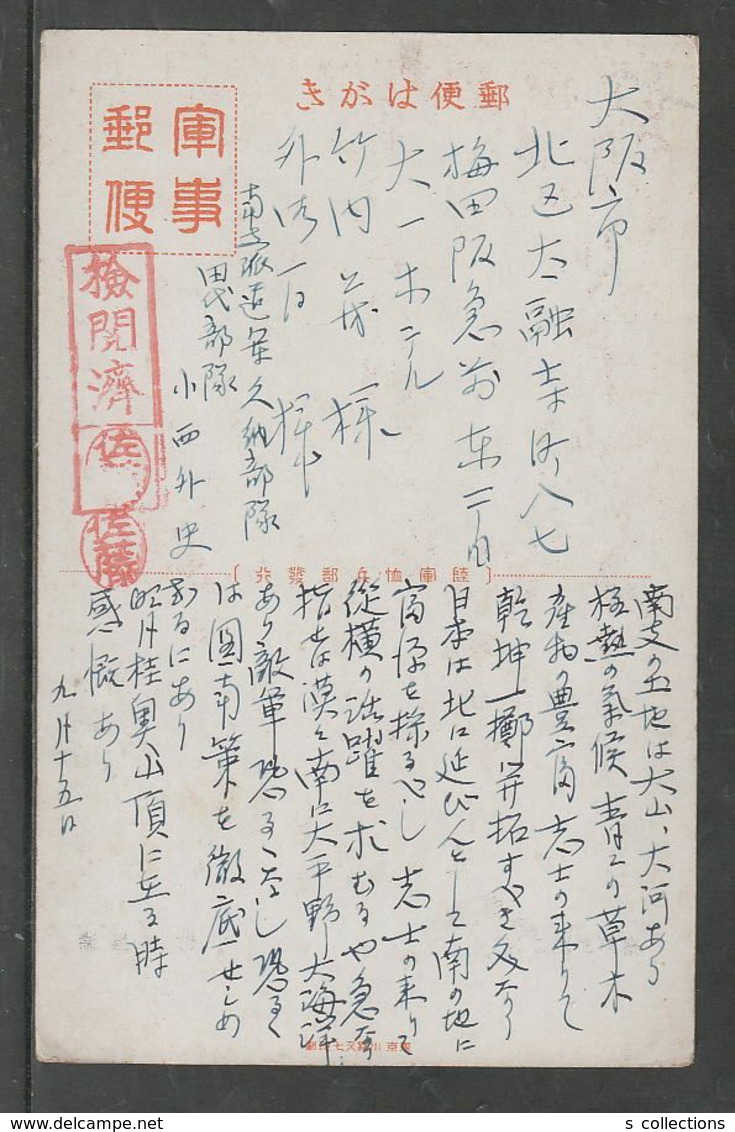 郵便はがき
軍事
郵便
検閲済
佐藤
大阪市
北区太融寺町八七
梅田阪急前東一丁目
大一ホテル
竹内 茂 様
外御一同 様
南支派遣軍久納部隊
田代部隊
小西外史
陸軍恤兵部發行
南支の土地は大山、大河あり
極熱の氣候 青々の草木
産物の豊富 志士の来りて
乾坤一擲に開拓すべき処なり
日本は北に延びんとして南の地に
富源を探るべし 志士の来りて
従横の活躍を求むるや急なり
指せば漠々南に大平野大海洋
あり敵軍恐るゝなし恐るゝ
は圖南策を徹底せしめ
ざるにあり
明月桂奥山頂に立る時
感慨あり
九月十五日
s collections